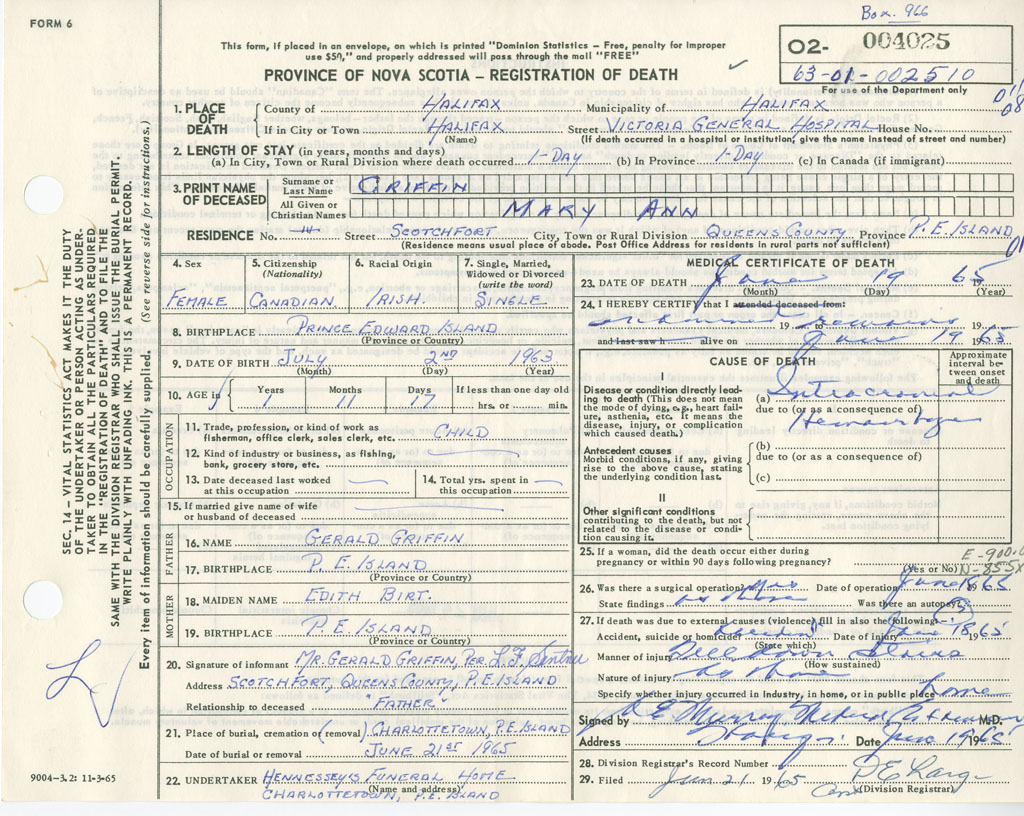 FORM 6
Box. 966
02- 004025
63-01-002510
For use of the Department only
This form, if placed in an envelope, on which is printed "Dominion Statistics – Free, penalty for improper
use $50," and properly addressed will pass through the mail "FREE"
PROVINCE OF NOVA SCOTIA – REGISTRATION OF DEATH
SEC. 14 – VITAL STATISTICS ACT MAKES IT THE DUTY
OF THE UNDERTAKER OR PERSON ACTING AS UNDER-
TAKER TO OBTAIN ALL THE PARTICULARS REQUIRED
IN THE "REGISTRATION OF DEATH" AND TO FILE THE
SAME WITH THE DIVISION REGISTRAR WHO SHALL ISSUE THE BURIAL PERMIT.
WRITE PLAINLY WITH UNFADING INK. THIS IS A PERMANENT RECORD.
Every item of information should be carefully supplied. (See reverse side for instructions.)
1. PLACE OF DEATH County of HALIFAX Municipality of HALIFAX
If in City or Town HALIFAX Street VICTORIA GENERAL HOSPITAL House No.
(Name) (If death occurred in a hospital or institution, give the name instead of street and number)
2. LENGTH OF STAY (in years, months and days)
(a) In City, Town or Rural Division where death occurred 1-DAY (b) In Province 1-DAY (c) In Canada (if immigrant)
3. PRINT NAME OF DECEASED Surname or Last Name GRIFFIN
All Given or Christian Names MARY ANN
RESIDENCE No. Street SCOTCHFORT City, Town or Rural Division QUEENS COUNTY Province P.E. ISLAND
(Residence means usual place of abode. Post Office Address for residents in rural parts not sufficient)
4. Sex FEMALE
5. Citizenship (Nationality) CANADIAN
6. Racial Origin IRISH.
7. Single, Married, Widowed or Divorced (write the word) SINGLE
8. BIRTHPLACE PRINCE EDWARD ISLAND
(Province or Country)
9. DATE OF BIRTH JULY 2ND 1963
(Month) (Day) (Year)
10. AGE in Years 1 Months 11 Days 17 If less than one day old hrs. or min.
OCCUPATION
11. Trade, profession, or kind of work as fisherman, office clerk, sales clerk, etc. CHILD
12. Kind of industry or business, as fishing, bank, grocery store, etc.
13. Date deceased last worked at this occupation
14. Total yrs. spent in this occupation
15. If married give name of wife or husband of deceased
FATHER
16. NAME GERALD GRIFFIN
17. BIRTHPLACE P.E. ISLAND
(Province or Country)
MOTHER
18. MAIDEN NAME EDITH BIRT.
19. BIRTHPLACE P.E. ISLAND
(Province or Country)
20. Signature of informant MR. GERALD GRIFFIN, PER. L.F.
Address SCOTCHFORT, QUEENS COUNTY, P.E. ISLAND
Relationship to deceased "FATHER"
21. Place of burial, cremation or (removal) CHARLOTTETOWN, P.E. ISLAND
Date of burial or removal JUNE 21ST 1965
22. UNDERTAKER HENNESSEY'S FUNERAL HOME
(Name and address)
CHARLOTTETOWN, P.E. ISLAND
9004–3.2: 11-3-65
MEDICAL CERTIFICATE OF DEATH
23. DATE OF DEATH June 19 1965
(Month) (Day) (Year)
24. I HEREBY CERTIFY that I attended deceased from:
examined 19 to remains 19
and last saw h alive on June 19 1965
CAUSE OF DEATH
Approximate interval between onset and death
I
Disease or condition directly leading to death (This does not mean the mode of dying, e.g., heart failure, asthenia, etc. It means the disease, injury, or complication which caused death.)
(a) Intracranial
due to (or as a consequence of)
Hemorrhage
Antecedent causes
Morbid conditions, if any, giving rise to the above cause, stating the underlying condition last.
(b)
due to (or as a consequence of)
(c)
II
Other significant conditions contributing to the death, but not related to the disease or condition causing it.
25. If a woman, did the death occur either during pregnancy or within 90 days following pregnancy?
(Yes or No)
E-900.0
N-855X
26. Was there a surgical operation? Yes Date of operation June 18 1965
State findings as above Was there an autopsy?
27. If death was due to external causes (violence) fill in also the following:
Accident, suicide or homicide? Accident Date of injury June 18 1965
(State which)
Manner of injury Fell down stairs
(How sustained)
Nature of injury as above
Specify whether injury occurred in Industry, in home, or in public place home
Signed by D.E. Murray Medical Examiner M.D.
Address Date June 19 1965
28. Division Registrar's Record Number
29. Filed Jun 21 1965
(Division Registrar)